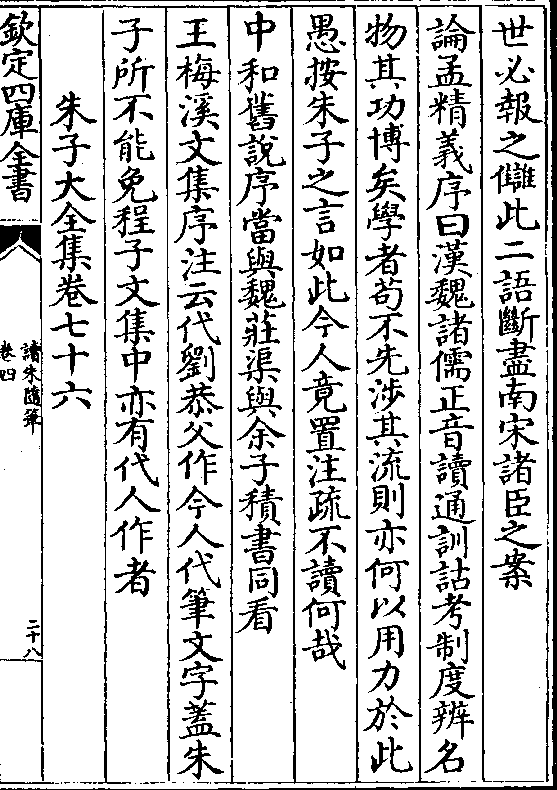 世必報之讎此二語斷盡南宋諸臣之案
論孟精義序曰漢魏諸儒正音讀通訓詁考制度辨名
物其功博矣學者苟不先涉其流則亦何以用力於此
愚按朱子之言如此今人竟置注疏不讀何哉
中和舊說序當與魏莊渠與余子積書同看
王梅溪文集序注云代劉恭父作今人代筆文字蓋朱
子所不能免程子文集中亦有代人作者
朱子大全集卷七十六
欽定四庫全書
讀朱隨筆
卷四
二十八